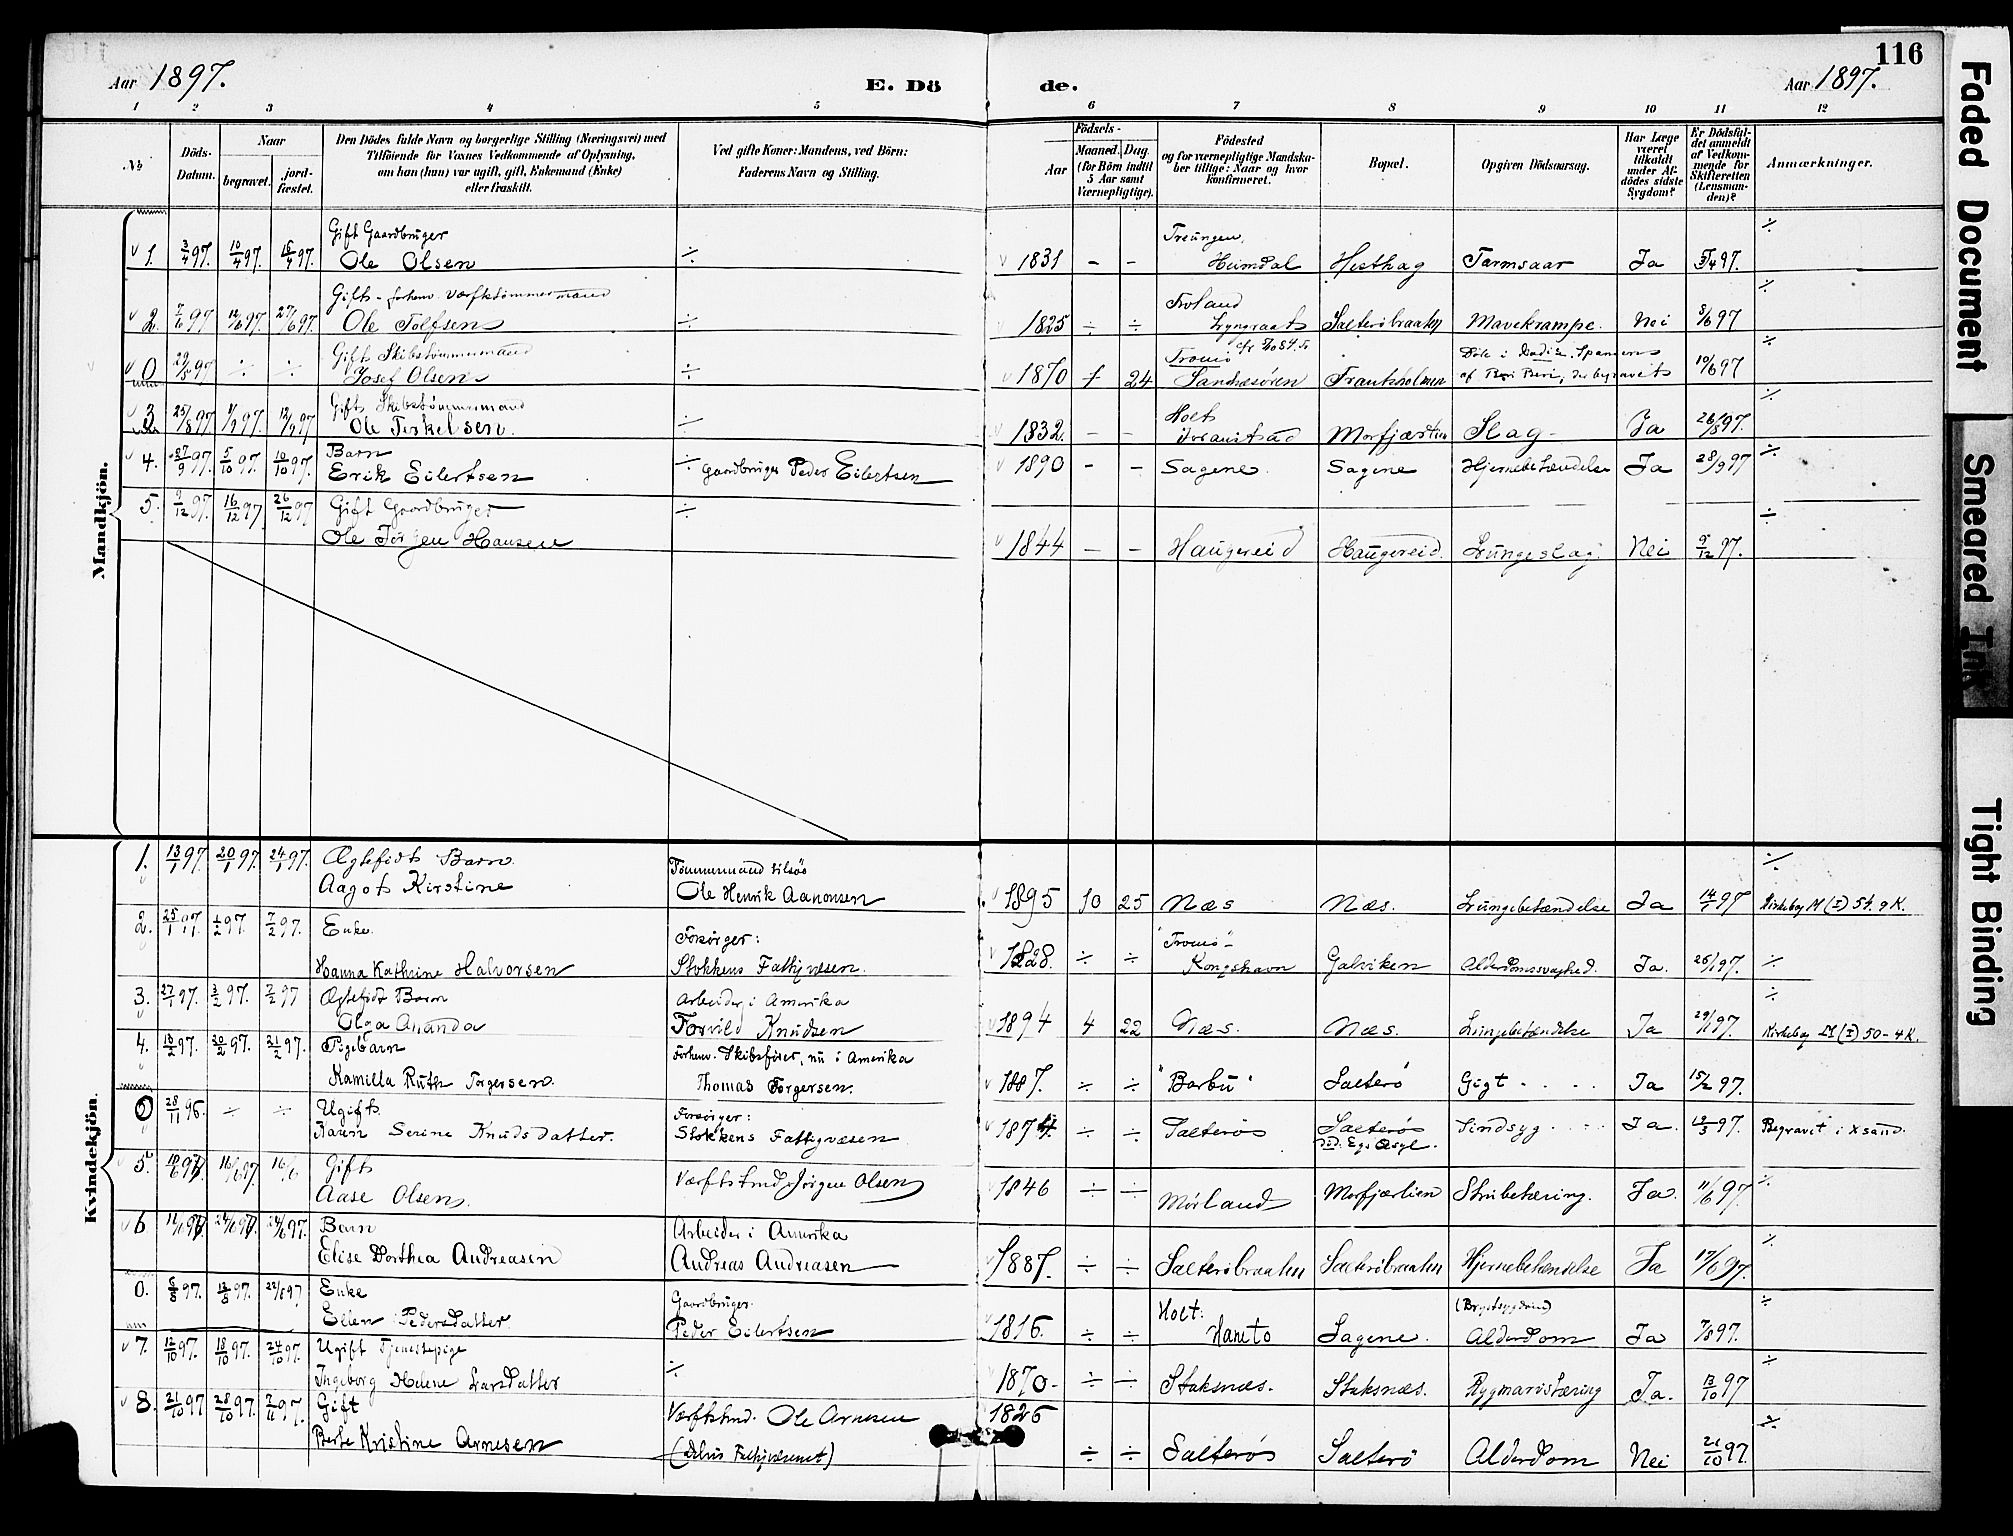 116
Aar 1897.
E. Döde.
Aar 1897.
1 2 3 4 5 6 7 8 9 10 11 12
No
Döds-Datum.
Naar
begravet.
jord-fæstet.
Den Dödes fulde Navn og borgerlige Stilling (Næringsvei) med
Tilföiende for Voxnes Vedkommende af Oplysning,
om han (hun) var ugift, gift, Enkemand (Enke)
eller fraskilt.
Ved gifte Koner: Mandens, ved Börn:
Faderens Navn og Stilling.
Födsels-
Aar
Maaned. Dag.
(for Börn indtil
5 Aar samt
Værnepligtige).
Födested
og for værnepligtige Mandska-
ber tillige: Naar og hvor
konfirmeret.
Bopæl.
Opgiven Dödsaarsag.
Har Læge
været
tilkaldt
under Af-
dödes sidste
Sygdom?
Er Dödsfal-
det anmeldt
af Vedkom-
mende for
Skifteretten
(Lensman-
den)?
Anmærkninger.
Mandkjön.
1. 3/4 97. 10/4 97. 15/4 97. Gift Gaardbruger
Ole Olsen ÷ 1831 - - Treungen,
Heimdal Hesthag Tarmsaar Ja 5/4 97. ÷
2. 7/6 97 12/6 97. 27/6 97. Gift - forhenv. Værftstømmermand
Ole Tolfsen ÷ 1825 ÷ ÷ Froland
Lyngraat Salterøbraaten Mavekrampe. Nei 8/6 97 ÷
0 29/5 97 ÷ ÷ Gift Skibstømmermand
Josef Olsen ÷ 1870 1 24 Tromø
Sandaasøren Frankholmen Døde i Dadiz, Spanien
af Beri Beri, der begravet 19/6 97 ÷
3. 25/8 97 1/9 97. 12/9 97. Gift Skibstømmermand
Ole Terkelsen. ÷ 1832. - - Holt
Morfjærlien Slag - Ja 26/8 97. ÷
4. 27/9 97. 5/10 97. 10/10 97. Barn
Erik Eilertsen ÷ Gaardbruger Peder Eilertsen 1890 - - Sagene. Sagene Hjernebetændelse Ja 28/9 97 ÷
5. 9/12 97. 16/12 97 26/12 97 Gift Gaardbruger
Ole Jørgen Hansen ÷ 1844 - - Haugereid Haugereid. Lungeslag. Nei 9/12 97. ÷
Kvindekjön.
1. 13/1 97 20/1 97. 24/1 97. Ægtefødt Barn.
Aagot Kirstine Tømmermand tilsøs
Ole Henrik Aanonsen 1895 10 25 Næs Næs. Lungebetændelse Ja 14/1 97 ÷
Kirkebog M (I) 54. 9 K.
2. 25/1 97. 1/2 97. 7/2 97. Enke.
Hanna Kathrine Halvorsen Forsørger:
Stokkens Fattigvæsen. 1828. ÷ ÷ "Tromø"
Kongshavn Galviken Alderdomssvaghed. Ja. 26/1 97. ÷
3. 27/1 97. 3/2 97. 7/2 97 Ægtefødt Barn
Olga Ananda Arbeider i Amerika
Torvild Knudsen 1894 4 22 Næs. Næs. Lungebetændelse Ja 29/1 97. ÷
Kirkebog M (I) 50 - 4 K.
4. 13/2 97. 20/2 97. 21/2 97. Pigebarn
Kamilla Ruth Torgersen. Forhenv. Skibsfører, nu i Amerika
Thomas Torgersen. 1887. ÷ ÷ "Barbu" Salterø Gigt Ja 15/2 97.
0 28/11 96. ÷ ÷ Ugift.
Karen Serine Knudsdatter. Forsørger:
Stokkens Fattigvæsen 1874. ÷ ÷ Salterøs Salterøs
Egs Asyl. Sindsyg Ja. 12/3 97. Begravet i Xsand.
5. 10/6 97 16/6 97 16/6 Gift
Aase Olsen. Værftstmd. Jørgen Olsen 1846 ÷ ÷ Mørland Morfjærlien Strubetæring. Ja. 11/6 97 ÷
6 24/6 97. Barn
Elise Dorthea Andreasen Arbeider i Amerika
Andreas Andreasen 1887. ÷ ÷ Salterøbraaten Salterøbraaten Hjernebetændelse Ja 17/6 97. ÷
0. 6/8 97. 13/8 97. 22/8 97 Enke
Ellen Pedersdatter. Gaardbruger.
Peder Eilertsen 1816. ÷ ÷ Holt:
Haneto Sagene. (Brystsygdom)
Alderdom Ja 7/8 97. ÷
7. 12/10 97. 18/10 97. 24/10 97. Ugift Tjenestepige
Ingeborg Helene Larsdatter ÷ 1870 - ÷ ÷ Staksnæs. Staksnæs. Rygmarvstæring Ja. 13/10 97 ÷
8. 21/10 97 28/10 97. 7/11 97. Gift
Berte Kristine Arnesen Værftstmd. Ole Arnesen
(delvis Fattigvæsenet) 1826 ÷ ÷ Salterøs Salterø Alderdom Nei 21/10 97. ÷
Faded Document
Smeared Ink
Tight Binding